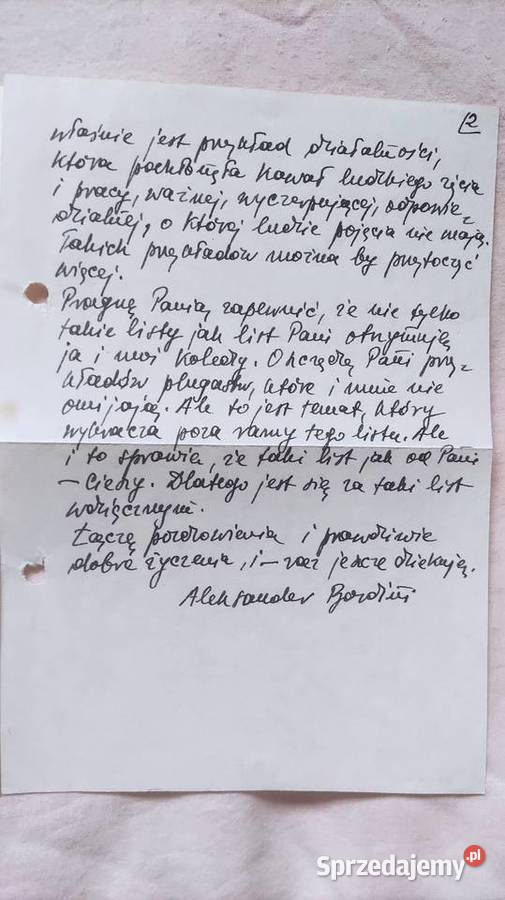 2
właśnie jest przykład działalności,
która pochłonęła kawał ludzkiego życia
i pracy, ważnej, wyczerpującej, odpowie-
dzialnej, o której ludzie pojęcia nie mają.
Takich przykładów można by przytoczyć
więcej.
Pragnę Panią zapewnić, że nie tylko
takie listy jak list Pani otrzymuję
ja i moi koledzy. Oszczędzę Pani przy-
kładów plugastw, które i mnie nie
omijają. Ale to jest temat, który
wykracza poza ramy tego listu. Ale
i to sprawia, że taki list jak od Pani
– cieszy. Dlatego jest się za taki list
wdzięcznym.
Łączę pozdrowienia i prawdziwie
dobre życzenia, i – raz jeszcze dziękuję.
Aleksander Bardini
Sprzedajemy.pl